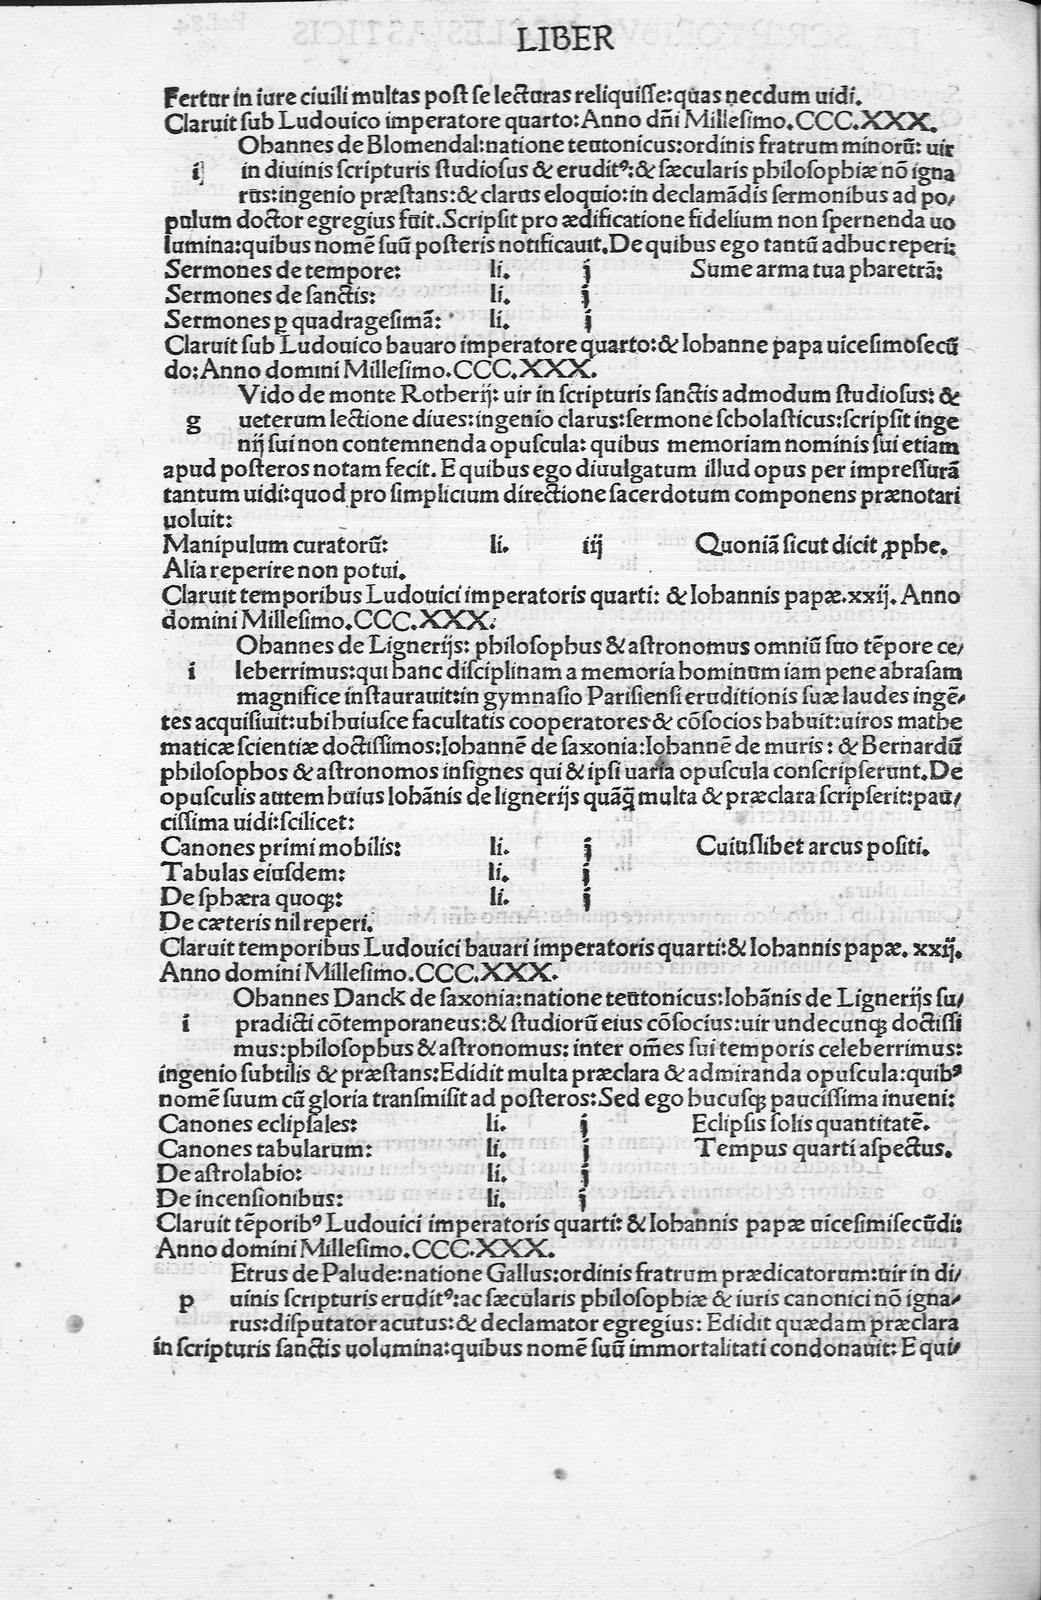 LIBER
Fertur in iure ciuili multas post se lecturas reliquisse:quas necdum uidi.
Claruit sub Ludouico imperatore quarto:Anno dn̄i Millesimo.CCC.XXX.
Obannes de Blomendal:natione teutonicus:ordinis fratrum minorū: uir
ij in diuinis scripturis studiosus & eruditꝰ:& sæcularis philosophiæ nō igna
rus:ingenio præstans:& clarus eloquio:in declamādis sermonibus ad po/
pulum doctor egregius fuit.Scripsit pro ædificatione fidelium non spernenda uo
lumina:quibus nomē suū posteris notificauit.De quibus ego tantū adhuc reperi:
Sermones de tempore: li. j Sume arma tua pharetrā:
Sermones de sanctis: li. j
Sermones ꝑ quadragesimā: li. j
Claruit sub Ludouico bauaro imperatore quarto:& Iohanne papa uicesimosecū
do:Anno domini Millesimo.CCC.XXX.
Vido de monte Rotherij: uir in scripturis sanctis admodum studiosus: &
g ueterum lectione diues:ingenio clarus:sermone scholasticus:scripsit inge
nij sui non contemnenda opuscula: quibus memoriam nominis sui etiam
apud posteros notam fecit. E quibus ego diuulgatum illud opus per impressurā
tantum uidi:quod pro simplicium directione sacerdotum componens prænotari
uoluit:
Manipulum curatorū: li. iij Quoniā sicut dicit ꝓphe.
Alia reperire non potui.
Claruit temporibus Ludouici imperatoris quarti: & Iohannis papæ.xxij. Anno
domini Millesimo.CCC.XXX.
Obannes de Lignerijs: philosophus & astronomus omniū suo tēpore ce/
i leberrimus:qui hanc disciplinam a memoria hominum iam pene abrasam
magnifice instaurauit:in gymnasio Parisiensi eruditionis suæ laudes ingē/
tes acquisiuit:ubi huiusce facultatis cooperatores & cōsocios habuit:uiros mathe
maticæ scientiæ doctissimos:Iohannē de saxonia:Iohannē de muris: & Bernardū
philosophos & astronomos insignes qui & ipsi uaria opuscula conscripserunt.De
opusculis autem huius Iohānis de lignerijs quāq̄ multa & præclara scripserit:pau/
cissima uidi:scilicet:
Canones primi mobilis: li. j Cuiuslibet arcus positi.
Tabulas eiusdem: li. j
De sphæra quoqꝫ: li. j
De cæteris nil reperi.
Claruit temporibus Ludouici bauari imperatoris quarti:& Iohannis papæ. xxij.
Anno domini Millesimo.CCC.XXX.
Obannes Danck de saxonia:natione teutonicus:Iohānis de Lignerijs su/
i pradicti cōtemporaneus:& studiorū eius cōsocius:uir undecunqꝫ doctissi
mus:philosophus & astronomus: inter om̄es sui temporis celeberrimus:
ingenio subtilis & præstans:Edidit multa præclara & admiranda opuscula:quibꝰ
nomē suum cū gloria transmisit ad posteros:Sed ego hucusqꝫ paucissima inueni:
Canones eclipsales: li. j Eclipsis solis quantitatē.
Canones tabularum: li. j Tempus quarti aspectus.
De astrolabio: li. j
De incensionibus: li. j
Claruit tēporibꝰ Ludouici imperatoris quarti: & Iohannis papæ uicesimisecūdi:
Anno domini Millesimo.CCC.XXX.
Etrus de Palude:natione Gallus:ordinis fratrum prædicatorum:uir in di/
p uinis scripturis eruditꝰ:ac sæcularis philosophiæ & iuris canonici nō igna/
rus:disputator acutus:& declamator egregius: Edidit quædam præclara
in scripturis sanctis uolumina:quibus nomē suū immortalitati condonauit: E qui/